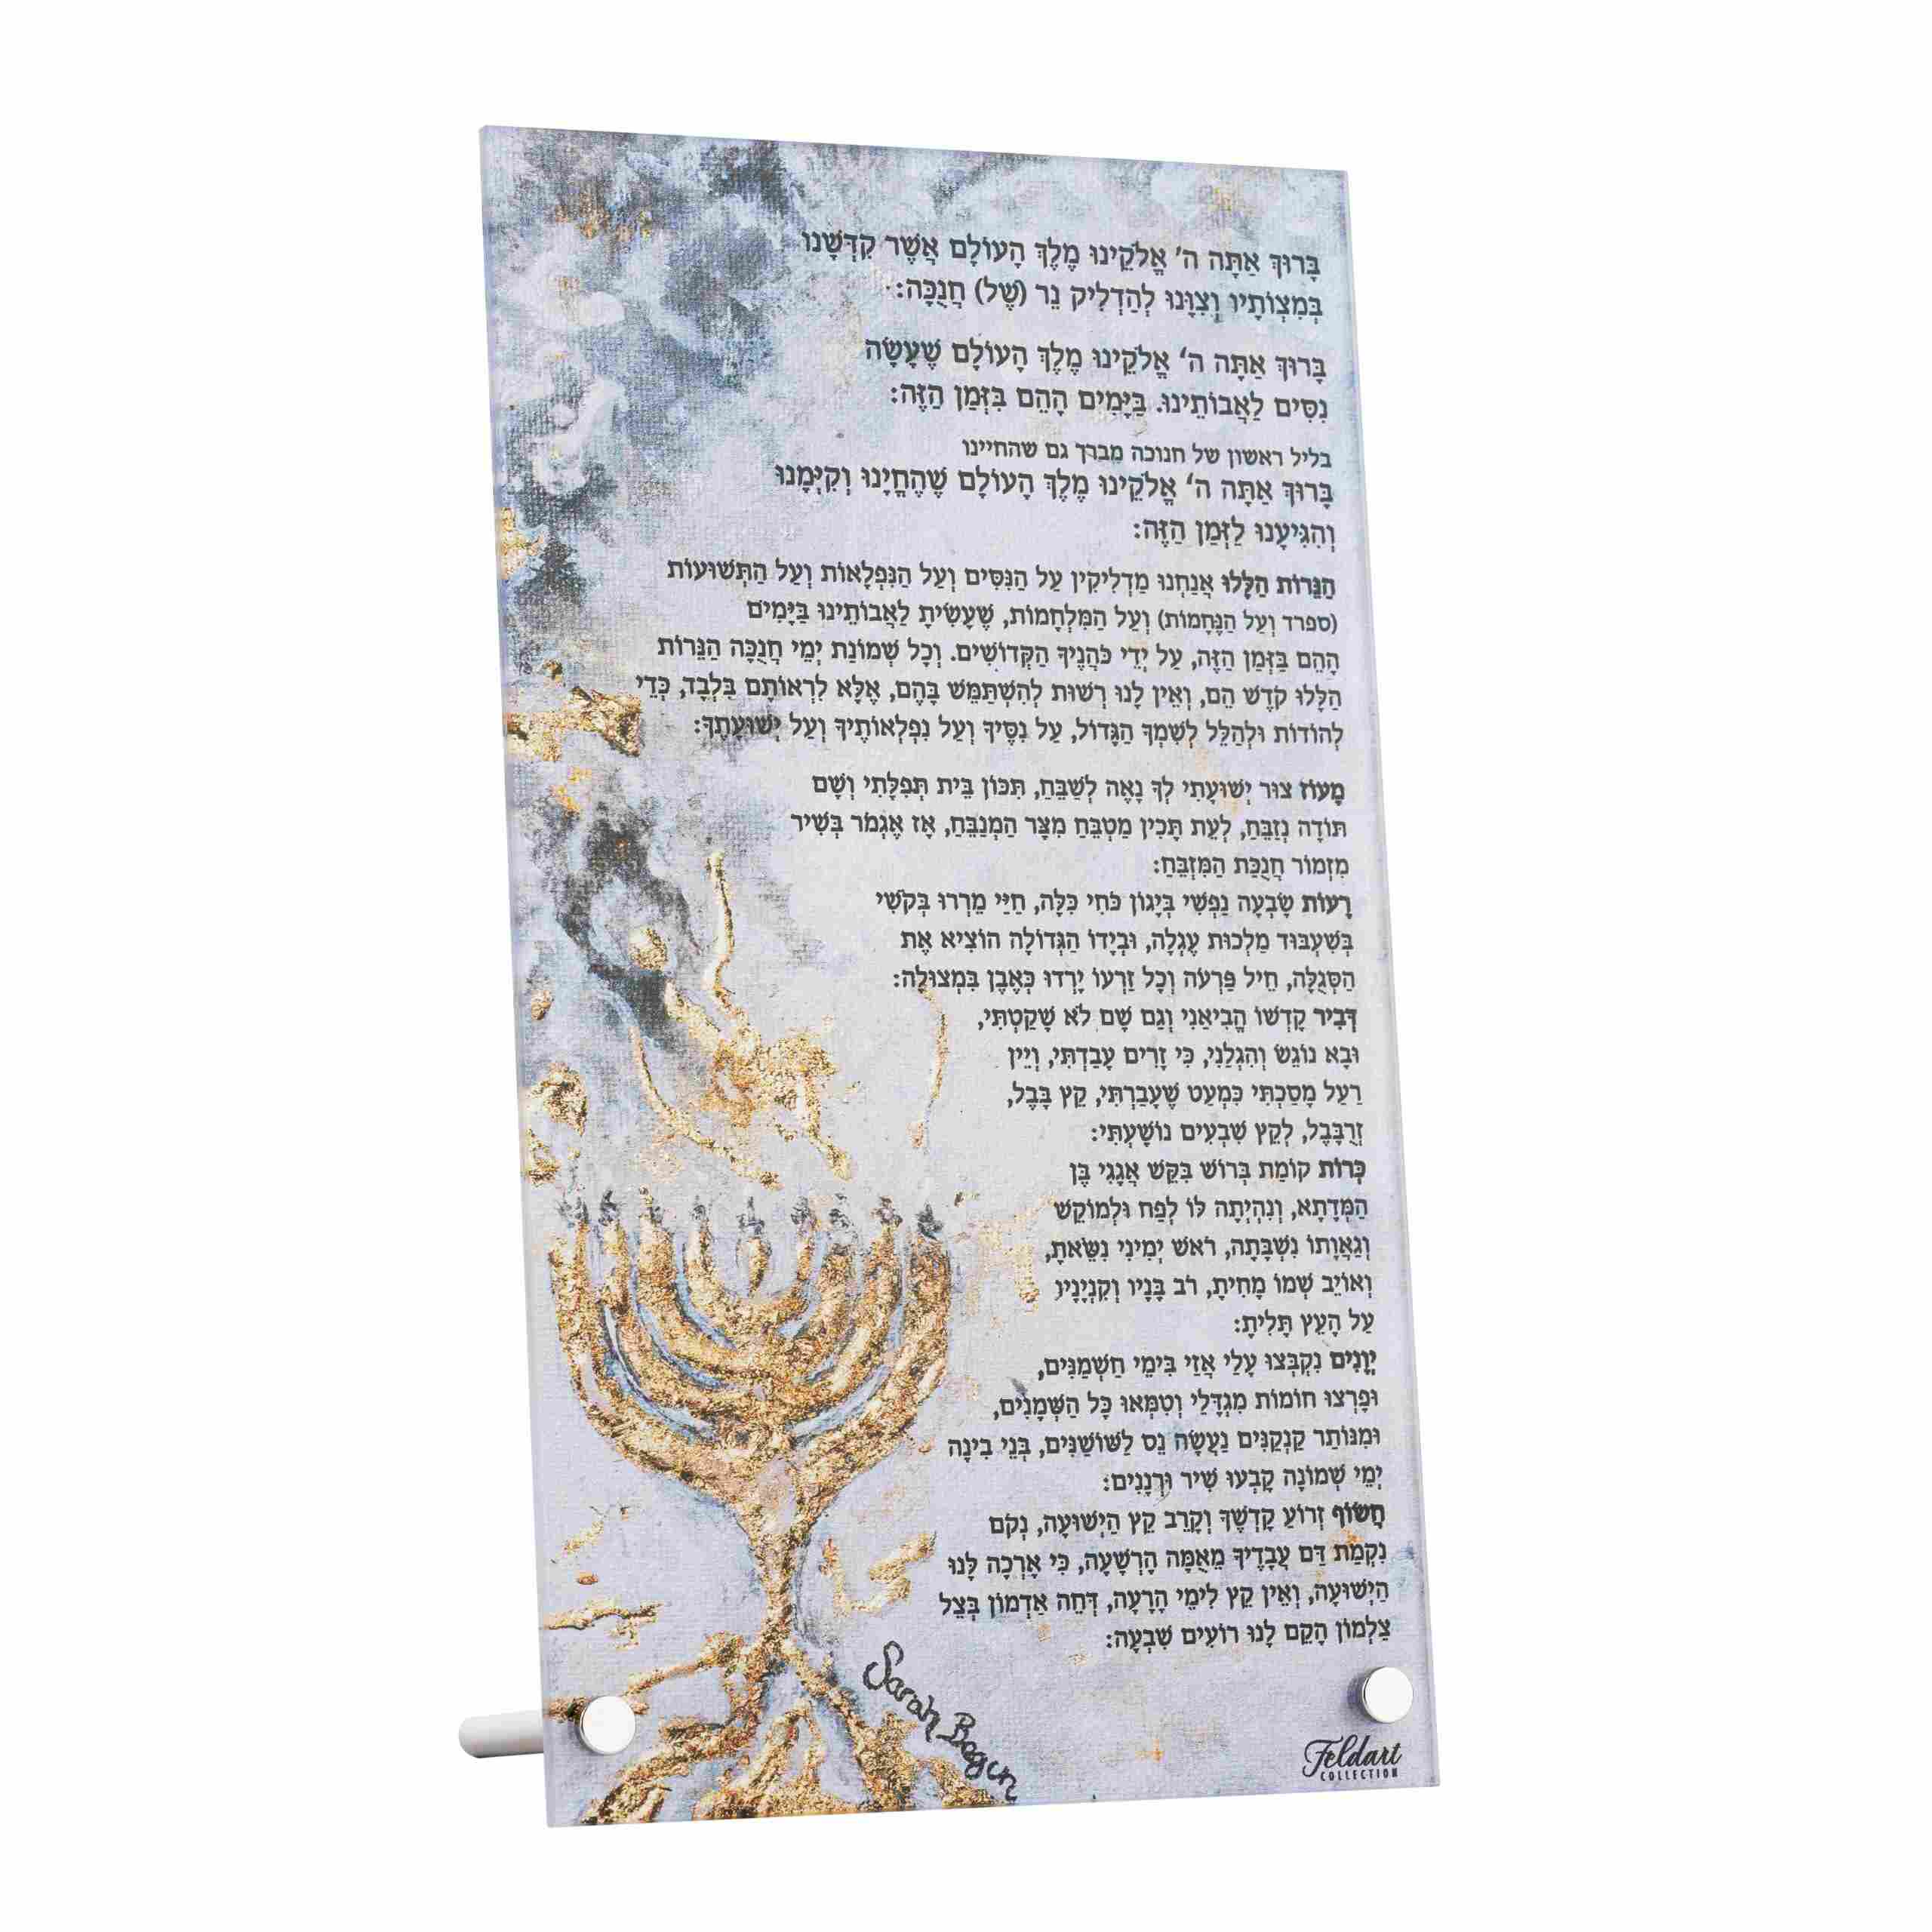 בָּרוּךְ אַתָּה ה' אֱלֹקֵינוּ מֶלֶךְ הָעוֹלָם אֲשֶׁר קִדְּשָׁנוּ
בְּמִצְוֹתָיו וְצִוָּנוּ לְהַדְלִיק נֵר (שֶׁל) חֲנֻכָּה:
בָּרוּךְ אַתָּה ה' אֱלֹקֵינוּ מֶלֶךְ הָעוֹלָם שֶׁעָשָׂה
נִסִּים לַאֲבוֹתֵינוּ. בַּיָּמִים הָהֵם בִּזְּמַן הַזֶּה:
בליל ראשון של חנוכה מברך גם שהחיינו
בָּרוּךְ אַתָּה ה' אֱלֹקֵינוּ מֶלֶךְ הָעוֹלָם שֶׁהֶחֱיָנוּ וְקִיְּמָנוּ
וְהִגִּיעָנוּ לַזְּמַן הַזֶּה:
הַנֵּרוֹת הַלָּלוּ אֲנַחְנוּ מַדְלִיקִין עַל הַנִּסִּים וְעַל הַנִּפְלָאוֹת וְעַל הַתְּשׁוּעוֹת
(ספרד וְעַל הַנֶּחָמוֹת) וְעַל הַמִּלְחָמוֹת, שֶׁעָשִׂיתָ לַאֲבוֹתֵינוּ בַּיָּמִים
הָהֵם בַּזְּמַן הַזֶּה, עַל יְדֵי כֹּהֲנֶיךָ הַקְּדוֹשִׁים. וְכָל שְׁמוֹנַת יְמֵי חֲנֻכָּה הַנֵּרוֹת
הַלָּלוּ קֹדֶשׁ הֵם, וְאֵין לָנוּ רְשׁוּת לְהִשְׁתַּמֵּשׁ בָּהֶם, אֶלָּא לִרְאוֹתָם בִּלְבָד, כְּדֵי
לְהוֹדוֹת וּלְהַלֵּל לְשִׁמְךָ הַגָּדוֹל, עַל נִסֶּיךָ וְעַל נִפְלְאוֹתֶיךָ וְעַל יְשׁוּעָתֶךָ:
מָעוֹז צוּר יְשׁוּעָתִי לְךָ נָאֶה לְשַׁבֵּחַ, תִּכּוֹן בֵּית תְּפִלָּתִי וְשָׁם
תּוֹדָה נְזַבֵּחַ, לְעֵת תָּכִין מַטְבֵּחַ מִצָּר הַמְנַבֵּחַ, אָז אֶגְמֹר בְּשִׁיר
מִזְמוֹר חֲנֻכַּת הַמִּזְבֵּחַ:
רָעוֹת שָׂבְעָה נַפְשִׁי בְּיָגוֹן כֹּחִי כִּלָּה, חַיַּי מֵרְרוּ בְּקֹשִׁי
בְּשִׁעְבּוּד מַלְכוּת עֶגְלָה, וּבְיָדוֹ הַגְּדוֹלָה הוֹצִיא אֶת
הַסְּגֻלָּה, חֵיל פַּרְעֹה וְכָל זַרְעוֹ יָרְדוּ כְּאֶבֶן בִּמְצוּלָה:
דְּבִיר קָדְשׁוֹ הֱבִיאַנִי וְגַם שָׁם לֹא שָׁקַטְתִּי,
וּבָא נוֹגֵשׂ וְהִגְלַנִי, כִּי זָרִים עָבַדְתִּי, וְיֵין
רַעַל מָסַכְתִּי כִּמְעַט שֶׁעָבַרְתִּי, קֵץ בָּבֶל,
זְרֻבָּבֶל, לְקֵץ שִׁבְעִים נוֹשָׁעְתִּי:
כְּרוֹת קוֹמַת בְּרוֹשׁ בִּקֵּשׁ אֲגָגִי בֶּן
הַמְּדָתָא, וְנִהְיְתָה לּוֹ לְפַח וּלְמוֹקֵשׁ
וְגַאֲוָתוֹ נִשְׁבָּתָה, רֹאשׁ יְמִינִי נִשֵּׂאתָ,
וְאוֹיֵב שְׁמוֹ מָחִיתָ, רֹב בָּנָיו וְקִנְיָנָיו
עַל הָעֵץ תָּלִיתָ:
יְוָנִים נִקְבְּצוּ עָלַי אֲזַי בִּימֵי חַשְׁמַנִּים,
וּפָרְצוּ חוֹמוֹת מִגְדָּלַי וְטִמְּאוּ כָּל הַשְּׁמָנִים,
וּמִנּוֹתַר קַנְקַנִּים נַעֲשָׂה נֵס לַשּׁוֹשַׁנִּים, בְּנֵי בִינָה
יְמֵי שְׁמוֹנָה קָבְעוּ שִׁיר וּרְנָנִים:
חֲשׂוֹף זְרוֹעַ קָדְשֶׁךָ וְקָרֵב קֵץ הַיְשׁוּעָה, נְקֹם
נִקְמַת דַּם עֲבָדֶיךָ מֵאֻמָּה הָרְשָׁעָה, כִּי אָרְכָה לָּנוּ
הַיְשׁוּעָה, וְאֵין קֵץ לִימֵי הָרָעָה, דְּחֵה אַדְמוֹן בְּצֵל
צַלְמוֹן הָקֵם לָנוּ רוֹעִים שִׁבְעָה:
Sarah Begun
Feldart
COLLECTION